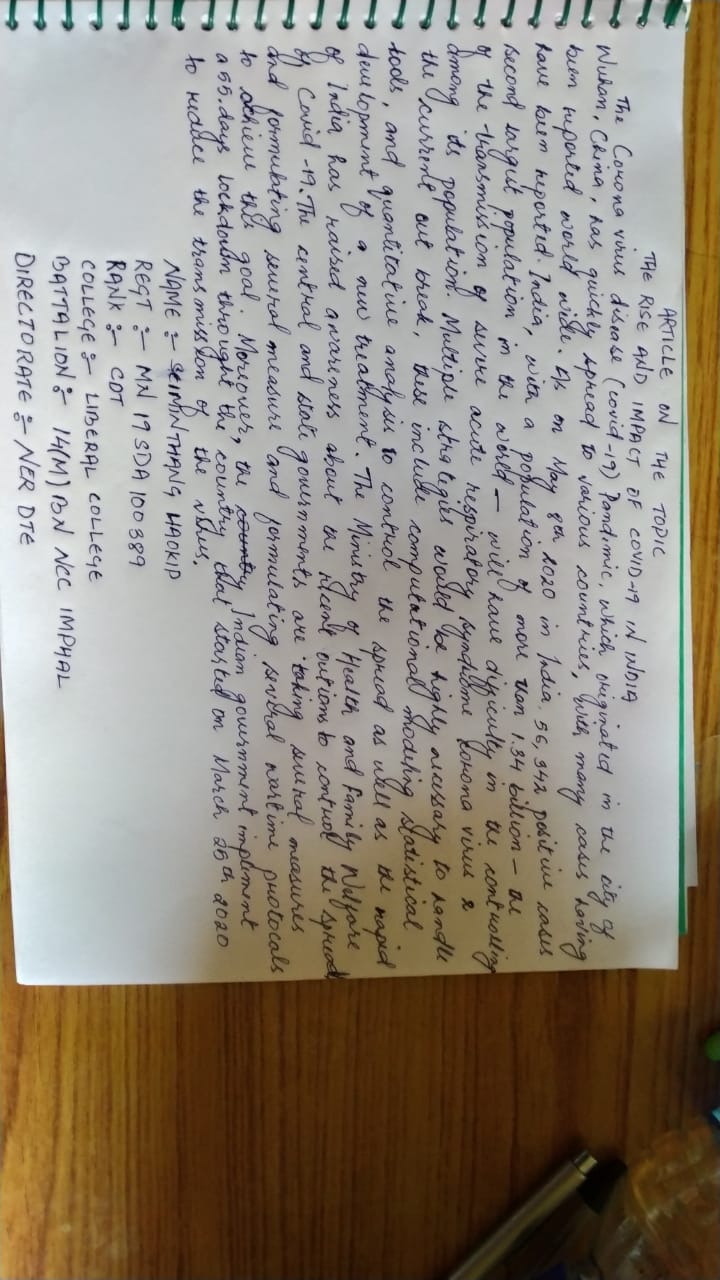 ARTICLE ON THE TOPIC
THE RISE AND IMPACT OF COVID-19 IN INDIA
The Corona virus disease (covid-19) Pandemic, which originated in the city of
Wuhan, China, has quickly spread to various countries, with many cases having
been reported world wide. As on May 8th 2020 in India, 56,342 positive cases
have been reported. India, with a population of more than 1.34 billion - the
second largest population in the world - will have difficulty in the controlling
of the transmission of severe acute respiratory syndrome corona virus 2
among its population. Multiple strategies would be highly necessary to handle
the current out break, these include computational modeling statistical
tools, and quantitative analysis to control the spread as well as the rapid
development of a new treatment. The Ministry of Health and Family Welfare
of India has raised awareness about the recent outions to control the spread
of Covid-19. The central and state governments are taking several measures
and formulating several measure and formulating several wartime protocals
to achieve this goal. Moreover, the country Indian government impliment
a 55.days lockdown throught the country that started on March 25th 2020
to reduce the transmission of the virus.
NAME :- SEIMINTHANG HAOKIP
REGT :- MN 19 SDA 100389
RANK :- CDT
COLLEGE :- LIBERAL COLLEGE
BATTALION :- 14(M) BN NCC IMPHAL
DIRECTORATE :- NER DTE